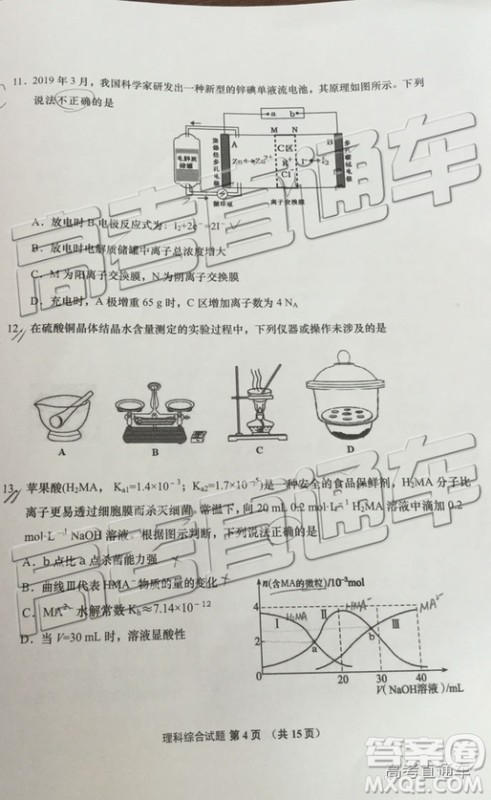 11. 2019 年 3 月，我国科学家研发出一种新型的锌碘单液流电池，其原理如图所示。下列
说法不正确的是
a b
M N
A
B
C区
电解质
储罐
Zn Zn²⁺
K⁺
Cl⁻
I⁻ I₂
循环泵
离子交换膜
A．放电时 B 电极反应式为：I₂+2e⁻=2I⁻
B．放电时电解质储罐中离子总浓度增大
C．M 为阳离子交换膜，N 为阴离子交换膜
D．充电时，A 极增重 65 g 时，C 区增加离子数为 4 NA
12. 在硫酸铜晶体结晶水含量测定的实验过程中，下列仪器或操作未涉及的是
A B C D
13. 苹果酸(H₂MA，Ka1=1.4×10⁻³；Ka2=1.7×10⁻⁵)是一种安全的食品保鲜剂，H₂MA 分子比
离子更易透过细胞膜而杀灭细菌。常温下，向 20 mL 0.2 mol·L⁻¹ H₂MA 溶液中滴加 0.2
mol·L⁻¹ NaOH 溶液，根据图示判断，下列说法正确的是
A．b 点比 a 点杀菌能力强
B．曲线Ⅲ代表 HMA⁻物质的量的变化
C．MA²⁻水解常数 Kh≈7.14×10⁻¹²
D．当 V=30 mL 时，溶液显酸性
n(含MA的微粒)/10⁻³mol
4
3
2
1
0
Ⅰ Ⅱ Ⅲ
HMA⁻
MA²⁻
a
b
20 30 40
V（NaOH溶液）/mL
理科综合试题 第 4 页 （共 15 页）
高考直通车
高考直通车
答案圈
MXQE.COM